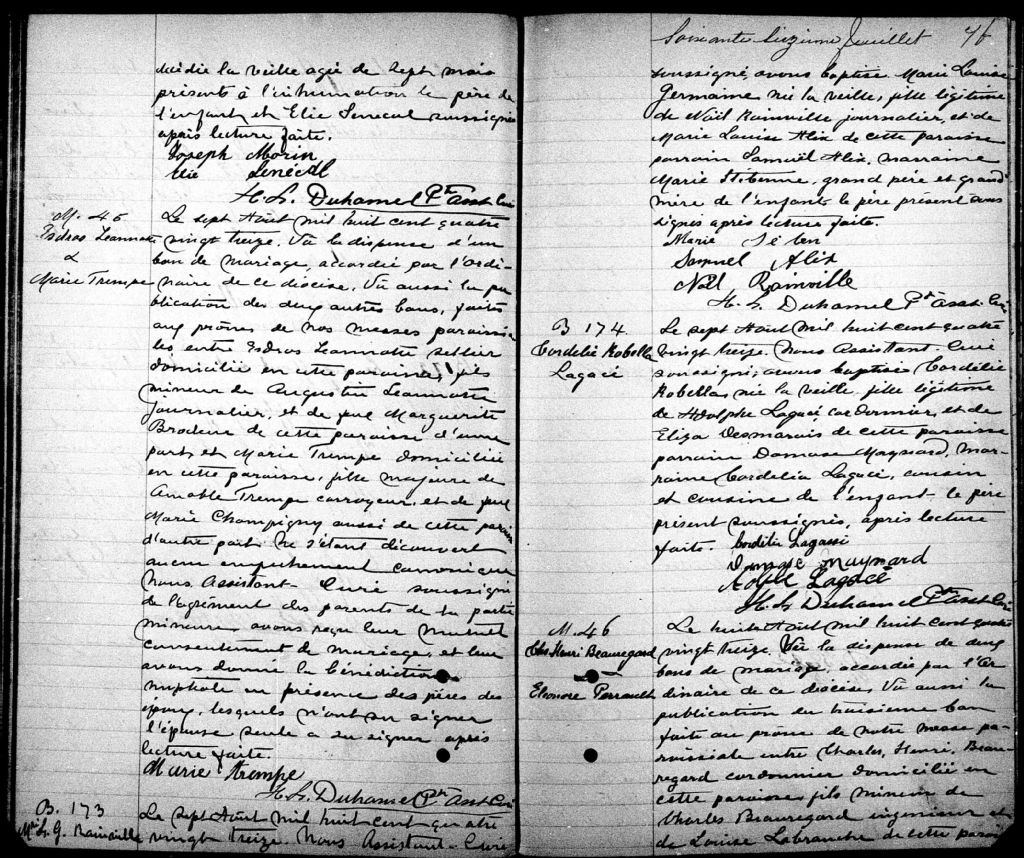 décédée la veille agée de sept mois
présent à l'inhumation le père de
l'enfant et Elie Senecal soussignés
après lecture faite.
Joseph Morin
Elie Senecal
H. L. Duhamel Ptre Asst Curé
M. 45
Esdras Jeannotte
&
Marie Trempe
Le sept Août mil huit cent quatre
vingt treize. Vu la dispense d'un
ban de mariage, accordée par l'ordi-
naire de ce diocèse, Vu aussi la pu
blication des deux autres bans, faits
aux prônes de nos messes paroissia
les entre Esdras Jeannotte sellier
domicilié en cette paroisse, fils
mineur de Augustin Jeannotte
journalier, et de feue Marguerite
Brodeur de cette paroisse d'une
part, et Marie Trempe domiciliée
en cette paroisse, fille majeure de
Amable Trempe corroyeur, et de feue
Marie Champigny aussi de cette paroisse
d'autre part. Ne s'étant découvert
aucun empêchement canonique
Nous Assistant-Curé soussigné
de l'agrément des parents de la partie
mineure avons reçu leur mutuel
consentement de mariage, et leur
avons donné la bénédiction
nuptiale en présence des pères des
époux, lesquels n'ont su signer
l'épouse seule a su signer après
lecture faite.
Marie trempe
H. L. Duhamel Ptre Asst Curé
B. 173
Mie L. G. Rainville
Le sept Août mil huit cent quatre
vingt treize. Nous Assistant-Curé
Soixante Sizième feuillet 76
soussigné, avons baptisé Marie Louise
Germaine née la veille, fille légitime
de Noël Rainville journalier, et de
Marie Louise Alix de cette paroisse
parrain Samuël Alix, marraine
Marie St. Etienne, grand père et grand
mère de l'enfant, le père présent sous
signés après lecture faite.
Marie
Samuel Alix
Noël Rainville
H. L. Duhamel Ptre Asst. Curé
B 174
Cordélie Robella
Lagacé
Le sept Août mil huit cent quatre
vingt treize. Nous Assistant-Curé
soussigné, avons baptisé Cordélie
Robella, née la veille, fille légitime
de Adolphe Lagacé cordonnier, et de
Eliza Desmarais de cette paroisse
parrain Damase Maynard, mar-
raine Cordélia Lagacé, cousin
et cousine de l'enfant le père
présent soussignés, après lecture
faite. Cordélie Lagassé
Damase Maynard
Adolphe Lagacé
H. L. Duhamel Ptre Asst Curé
M. 46
Chs Henri Beauregard
&
Eleonore Perrault
Le huit Août mil huit cent quatre
vingt treize. Vu la dispense de deux
bans de mariage accordée par l'Or
dinaire de ce diocèse, Vu aussi la
publication du troisième ban
faite au prône de notre messe pa-
roissiale entre Charles, Henri, Beau-
regard cordonnier domicilié en
cette paroisse, fils mineur de
Charles Beauregard ingénieur et
de Louise Labranche de cette paroisse